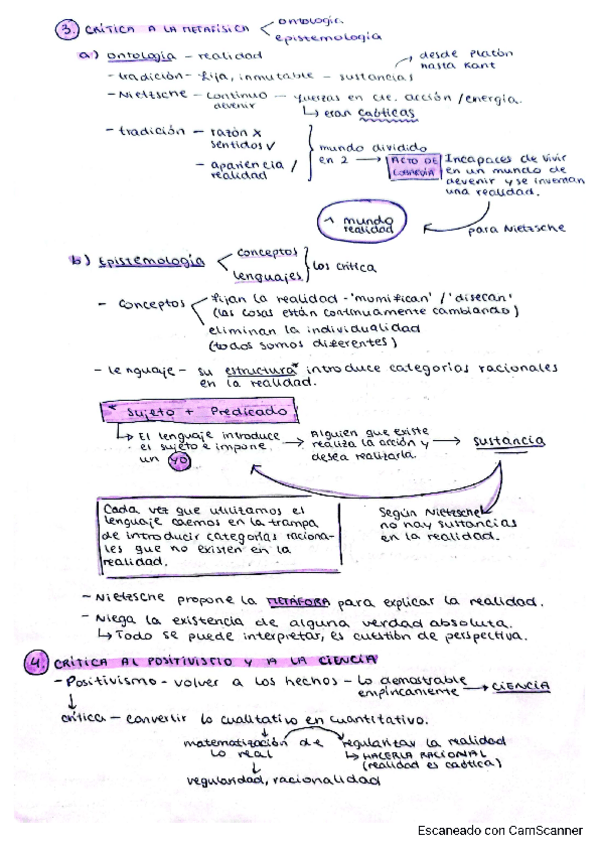 3. CRÍTICA A LA METAFÍSICA
ontología.
epistemología
a.) ontología - realidad
desde Platón
hasta Kant
- tradición - fija, inmutable - sustancias
- Nietzsche - continuo devenir - fuerzas en cte. acción / energía.
↳ eran caóticas
- tradición - razón x
sentidos ✓
- apariencia /
realidad
mundo dividido
en 2 → ACTO DE COBARDÍA
Incapaces de vivir
en un mundo de
devenir y se inventan
una realidad.
1 mundo
realidad
para Nietzsche
b) Epistemología
conceptos
lenguajes
los critica
- conceptos
fijan la realidad - 'momifican' / 'disecan'
(las cosas están continuamente cambiando)
eliminan la individualidad
(todos somos diferentes)
- lenguaje - su estructura* introduce categorías racionales
en la realidad.
* Sujeto + Predicado
↳ El lenguaje introduce
el sujeto e impone
un YO
→ Alguien que existe
realiza la acción y
desea realizarla.
→ sustancia
Cada vez que utilizamos el
lenguaje caemos en la trampa
de introducir categorías raciona-
les que no existen en la
realidad.
Según Nietzsche
no hay sustancias
en la realidad.
- Nietzsche propone la METÁFORA para explicar la realidad.
- Niega la existencia de alguna verdad absoluta.
↳ Todo se puede interpretar, es cuestión de perspectiva.
4. CRÍTICA AL POSITIVISMO Y A LA CIENCIA
- Positivismo - volver a los hechos - lo demostrable
empíricamente → CIENCIA
crítica - convertir lo cualitativo en cuantitativo.
matematización de
lo real
regularizar la realidad
↳ HACERLA RACIONAL
(realidad es caótica)
regularidad, racionalidad
Escaneado con CamScanner